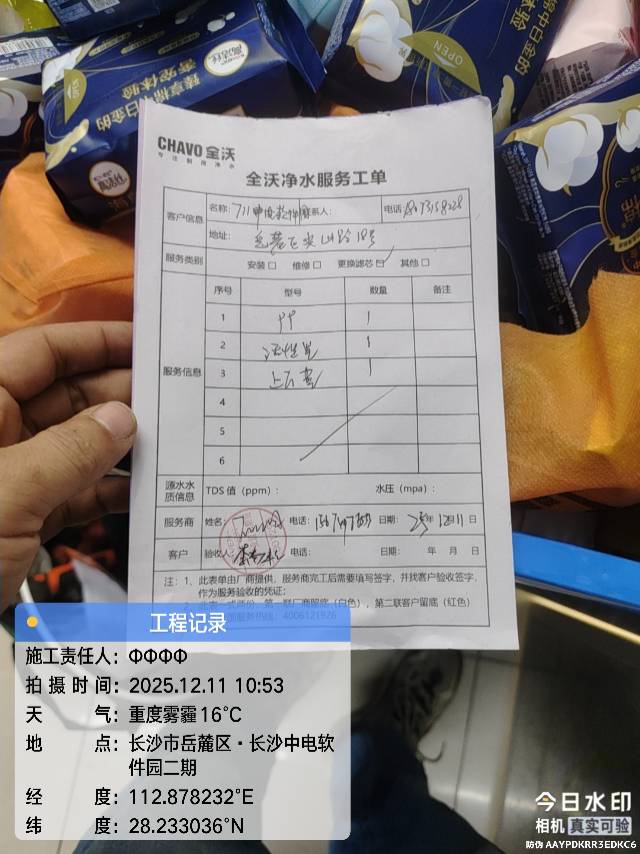 CHAVO 全沃
专注制用净水
全沃净水服务工单
客户信息 名称: 711中电软件园 联系人: 电话:
地址: 岳麓区尖山路18号
服务类别 安装☐ 维修☐ 更换滤芯☑ 其他☐
服务信息 序号 型号 数量 备注
1 PP 1
2 活性炭 1
3 1
4
5
6
源水水质信息 TDS 值（ppm）: 水压（mpa）:
服务商 姓名: 电话: 日期: 25年12月11日
客户 验收人: 电话: 日期: 年 月 日
注：1、此表单由厂商提供，服务商完工后需要填写签字，并找客户验收签字，
作为服务验收的凭证;
2、此表一式两份，第一联厂商留底（白色），第二联客户留底（红色）
服务热线：4006121926
工程记录
施工责任人：ΦΦΦΦ
拍摄时间：2025.12.11 10:53
天气：重度雾霾16℃
地点：长沙市岳麓区·长沙中电软
件园二期
经度：112.878232°E
纬度：28.233036°N
今日水印
相机 真实可验
防伪 AAYPDKRR3EDKC6
OPEN
高洁丝
臻享棉中白金的
奢宠体验